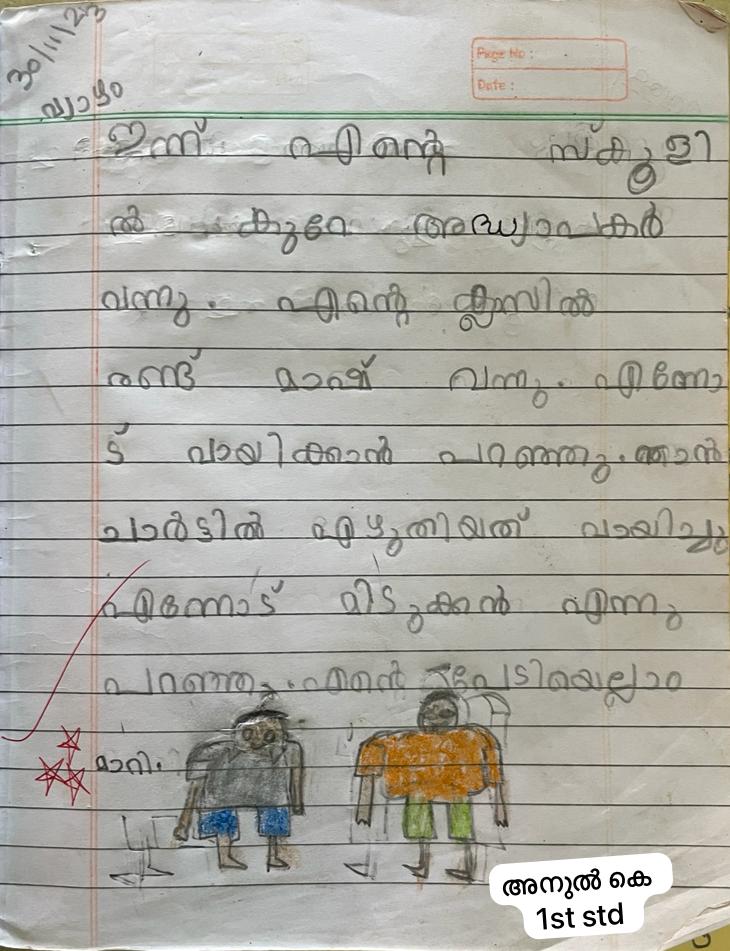 30/11/23
വ്യാഴം
Page No :
Date :
ഇന്ന് എന്റെ സ്കൂളി
ൽ കുറേ അദ്ധ്യാപകർ
വന്നു. എന്റെ ക്ലാസിൽ
രണ്ട് മാഷ് വന്നു. എന്നോ
ട് വായിക്കാൻ പറഞ്ഞു. ഞാൻ
ചാർട്ടിൽ എഴുതിയത് വായിച്ചു
എന്നോട് മിടുക്കൻ എന്നു
പറഞ്ഞു. എന്റെ പേടിയെല്ലാം
മാറി.
അനുൽ കെ
1st std